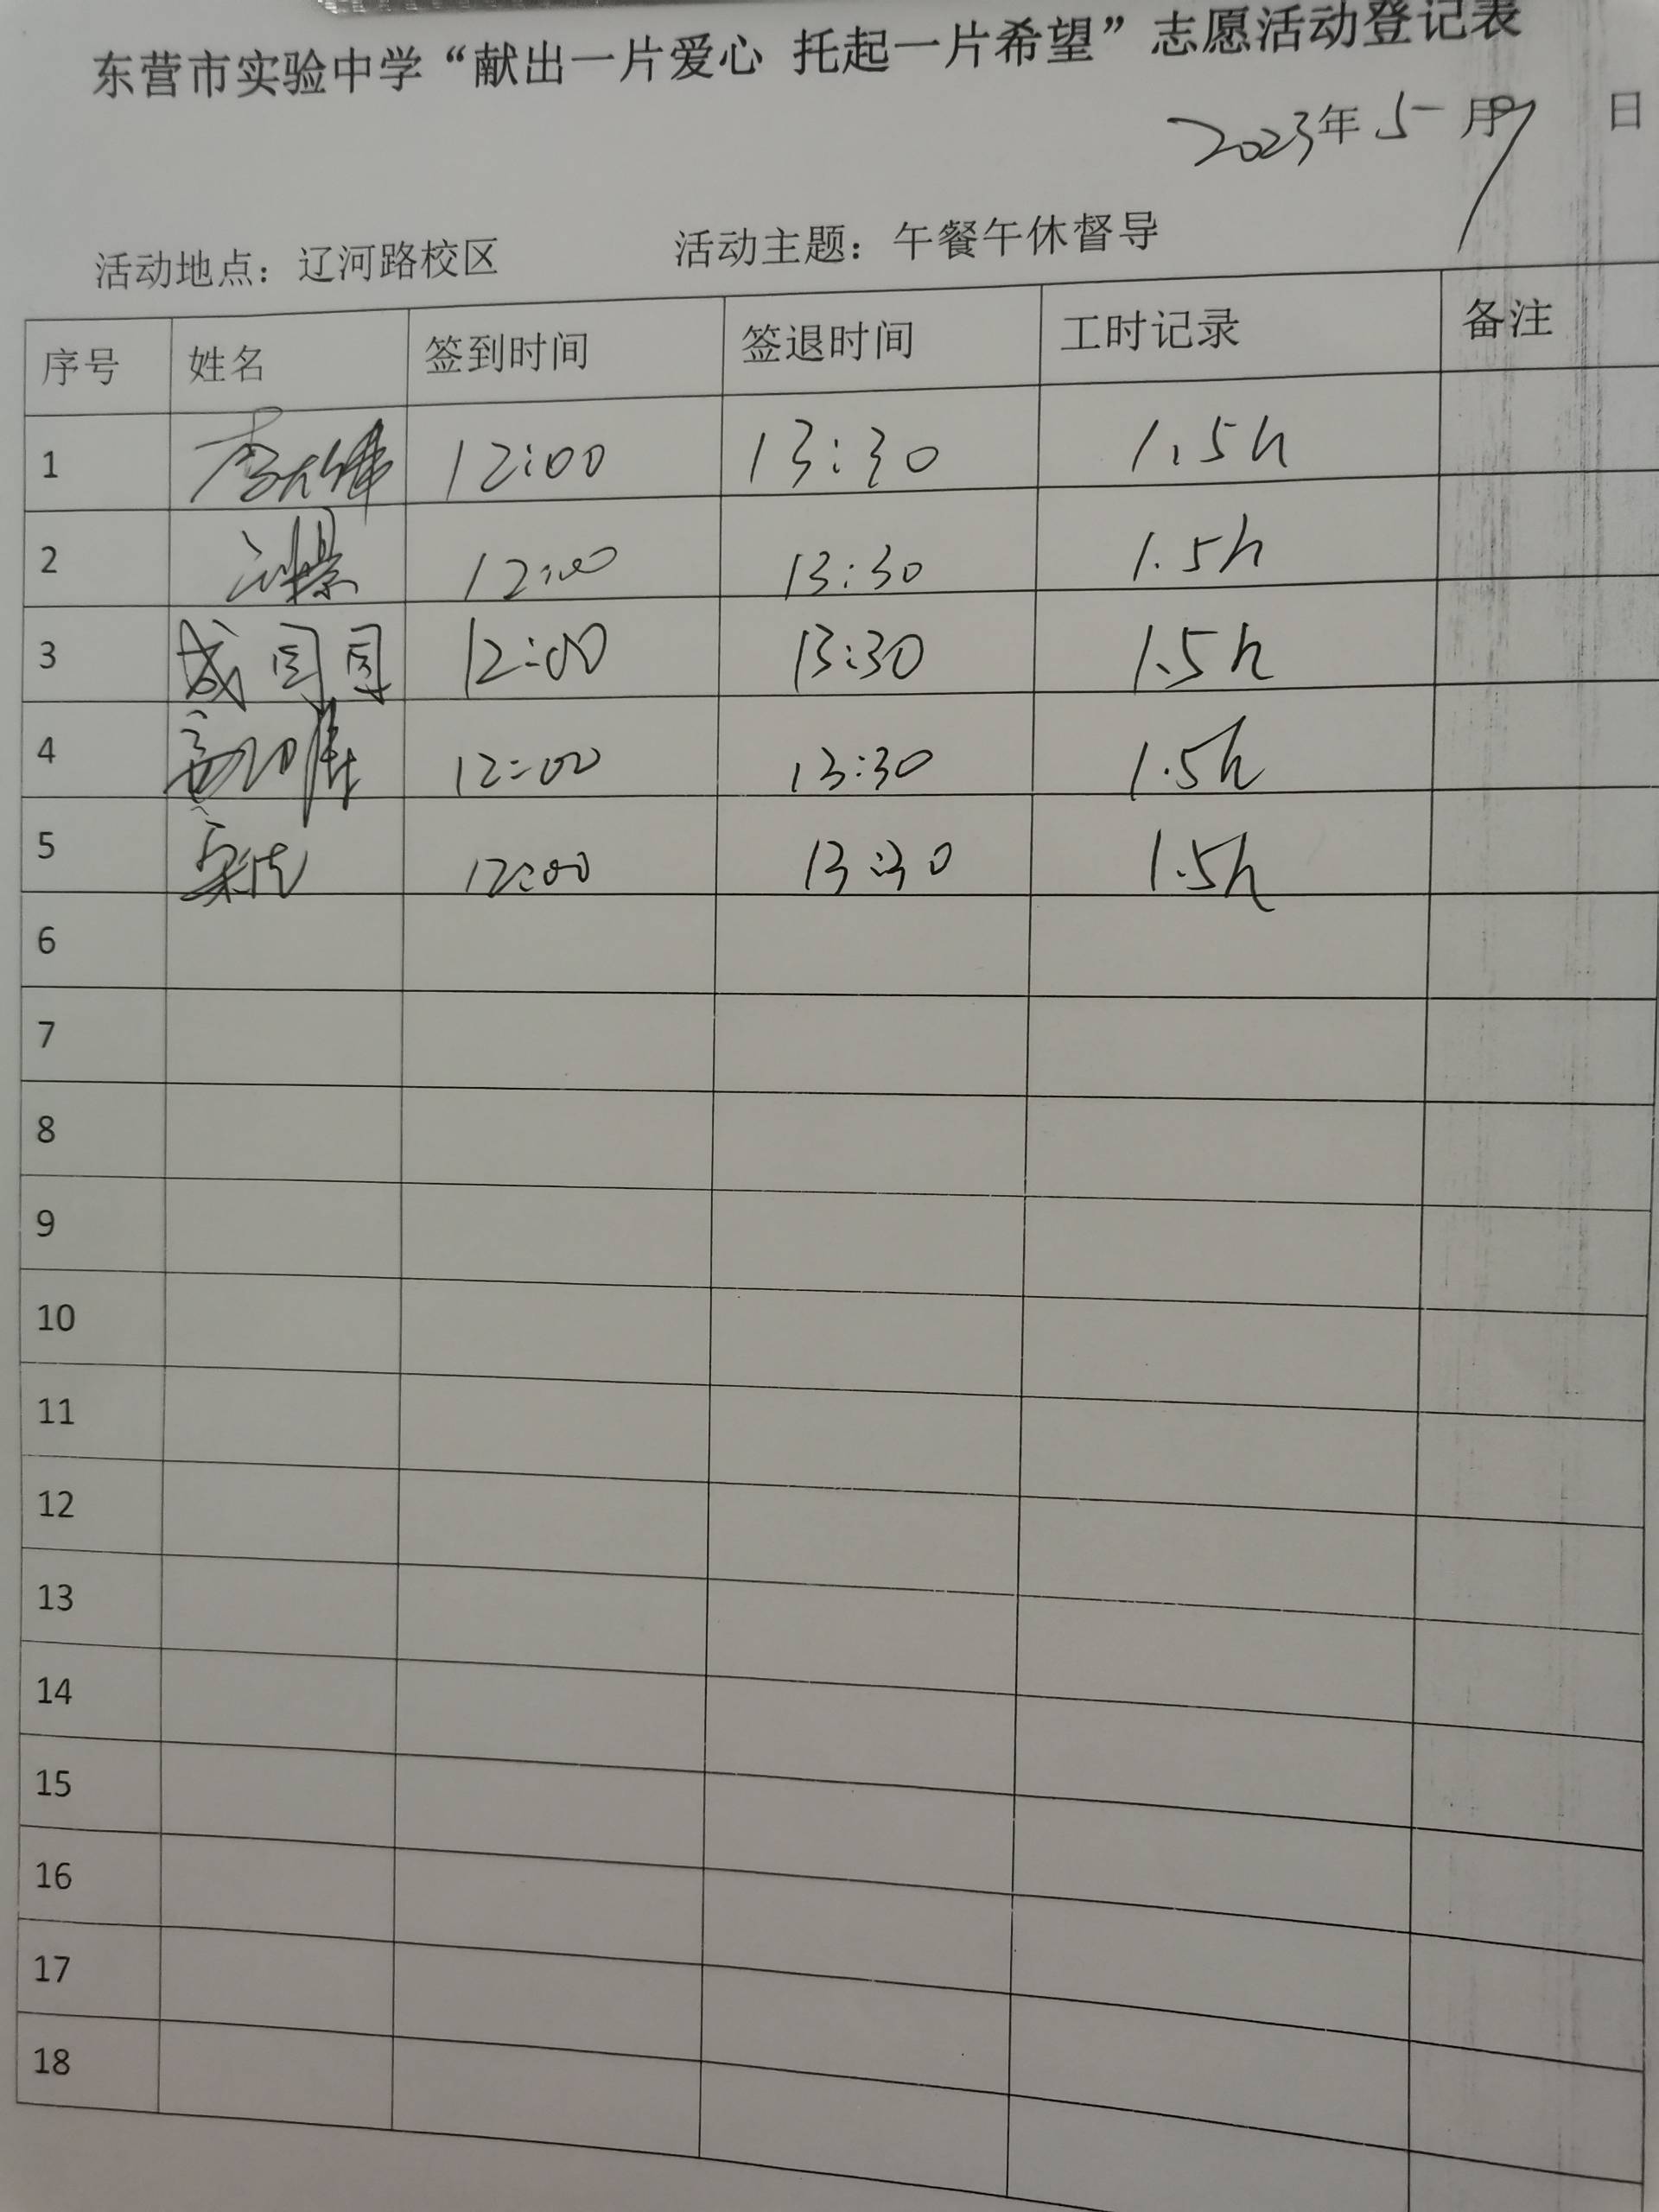 东营市实验中学“献出一片爱心 托起一片希望”志愿活动登记表
2023年5月9日
活动地点：辽河路校区 活动主题：午餐午休督导
序号 姓名 签到时间 签退时间 工时记录 备注
1 12:00 13:30 1.5h
2 12:00 13:30 1.5h
3 12:00 13:30 1.5h
4 12:00 13:30 1.5h
5 12:00 13:30 1.5h
6
7
8
9
10
11
12
13
14
15
16
17
18